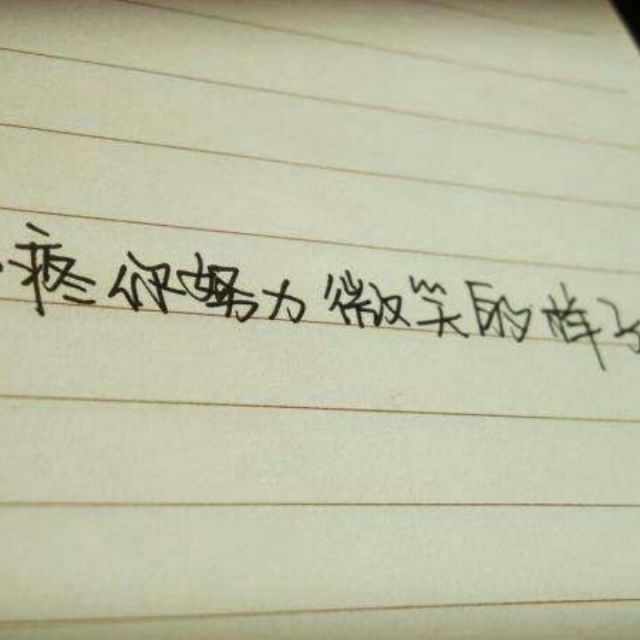 疼你努力微笑的样子